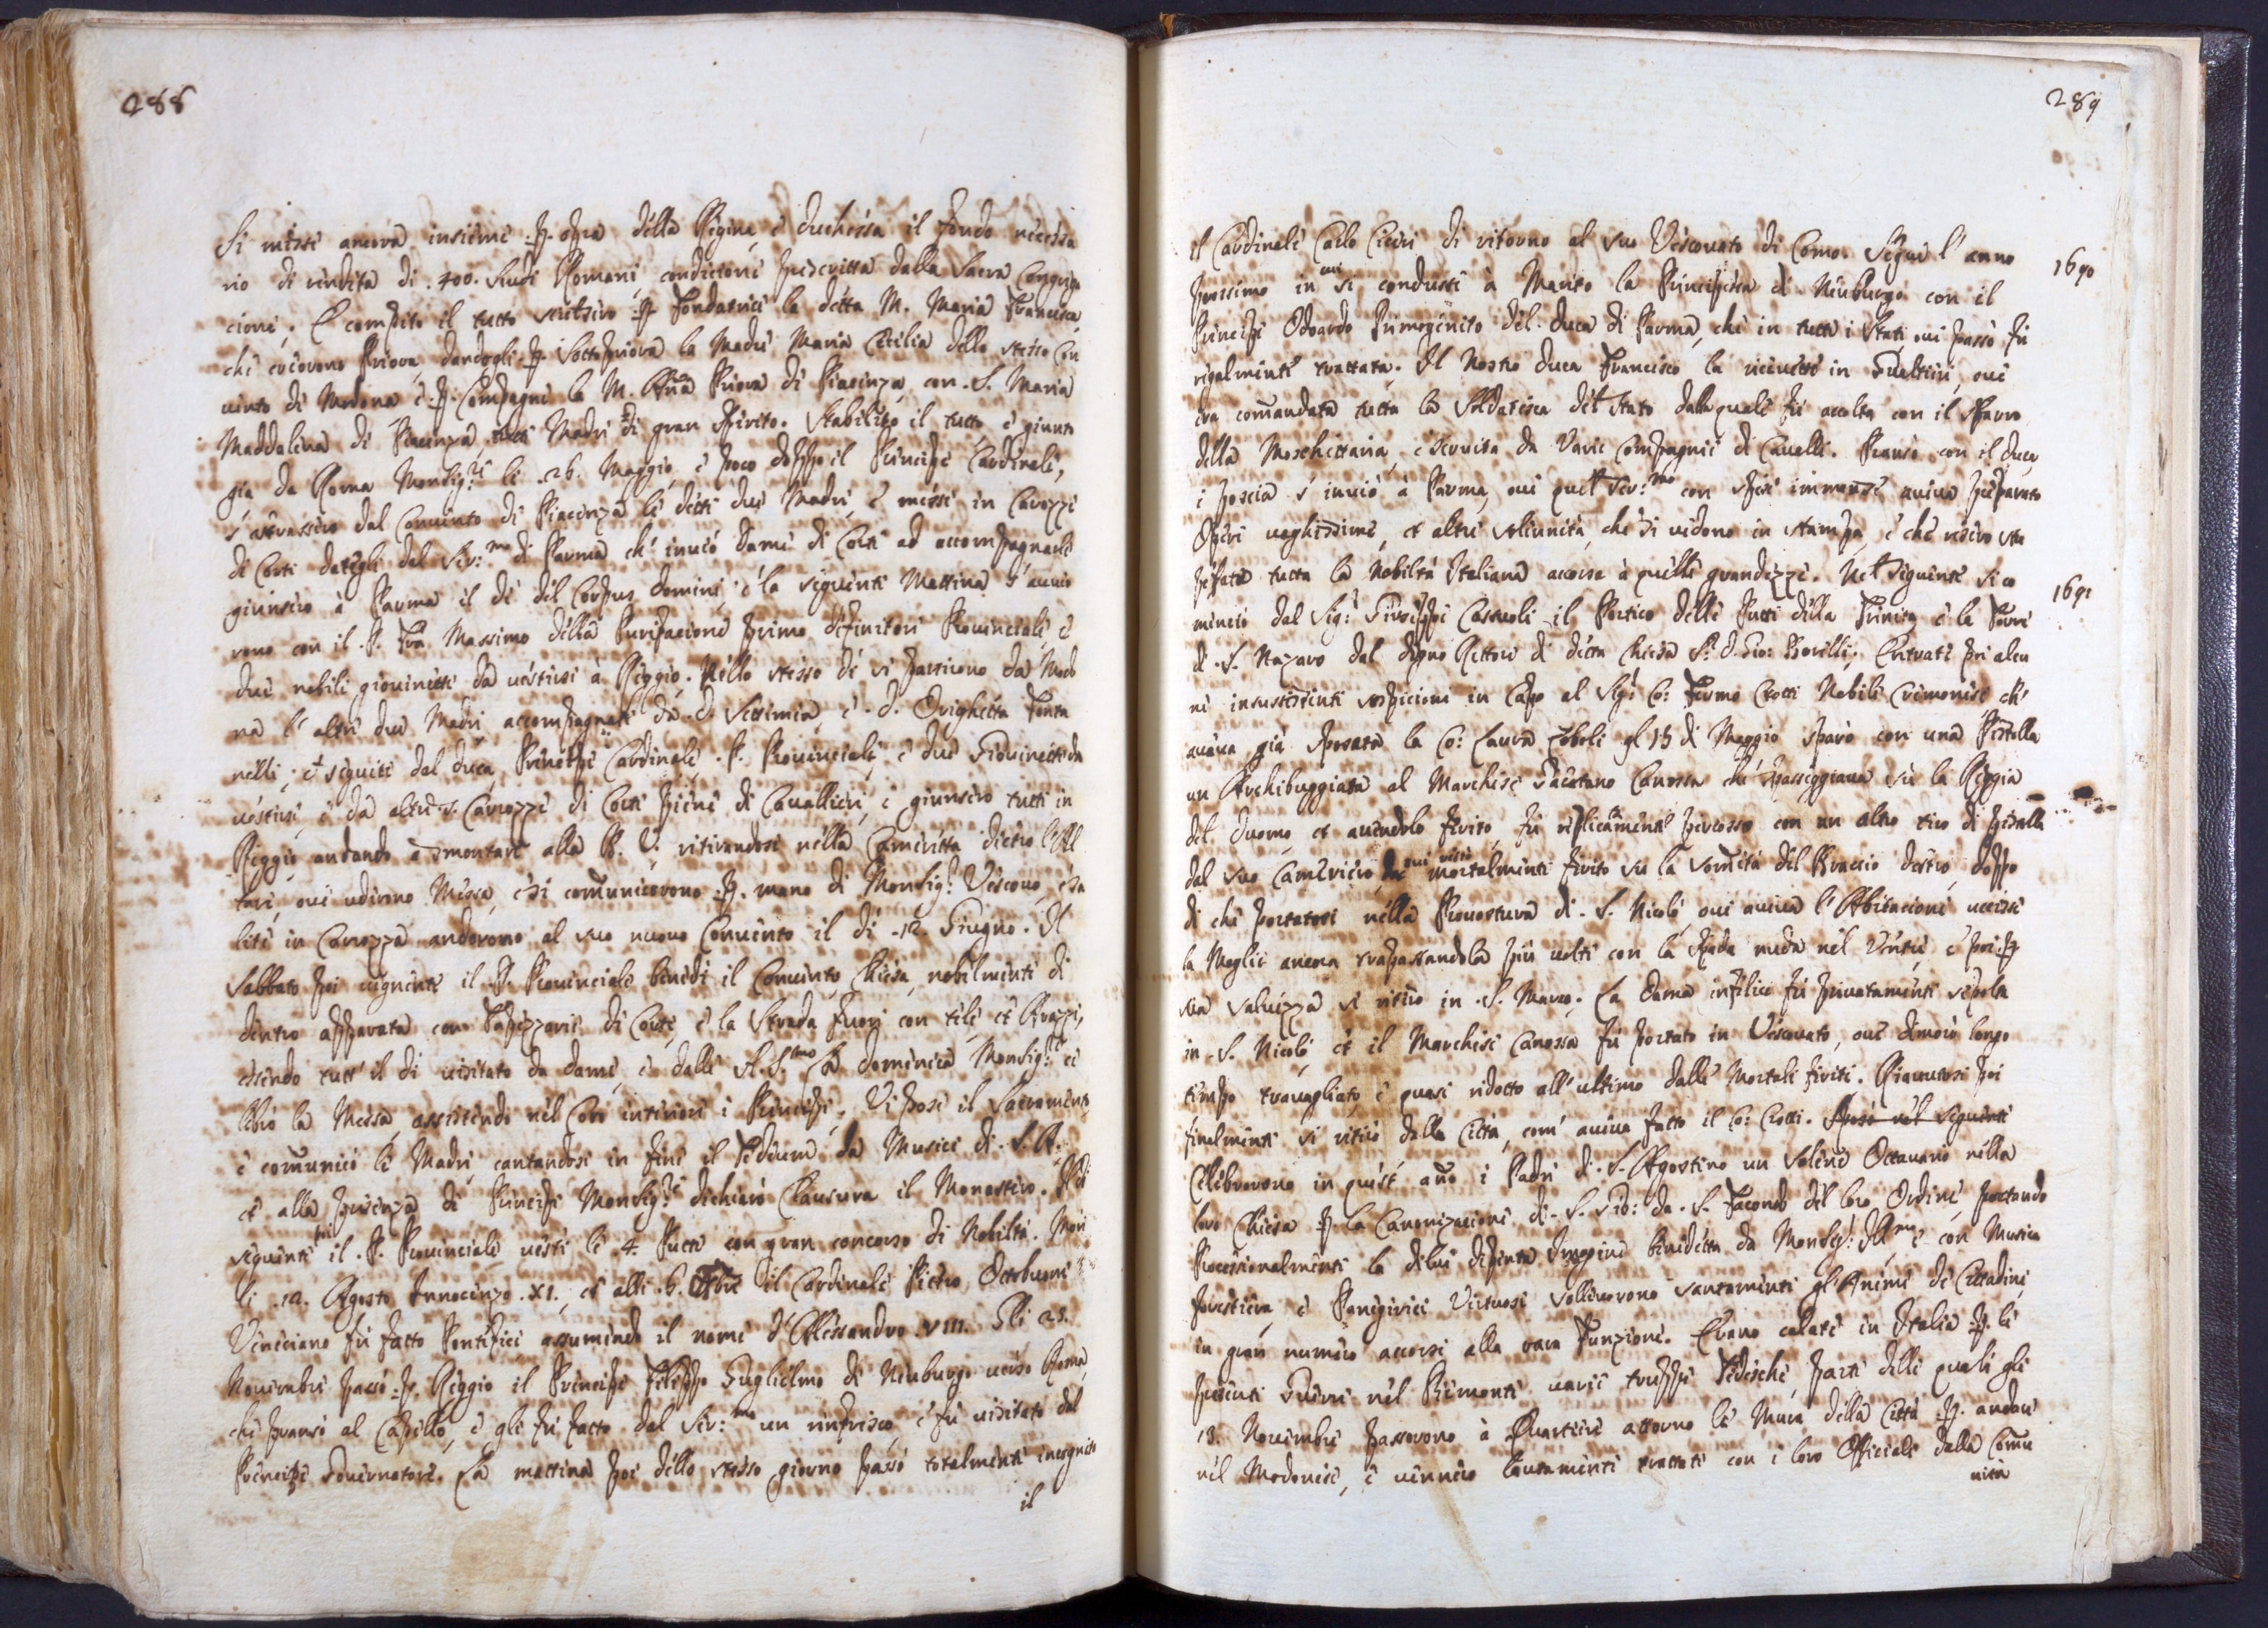 288
Si misse ancora insieme p. opra della Regina, e Duchessa il fondo necessa
rio di rendita di .400. Scudi Romani, condicione prescritta dalla Sacra Congrega
cione. E compito il tutto scielsero p. Fondatrice la detta M. Maria Francesca,
che crearono Priora, dandogli p. Sottopriora la Madre Maria Cicilia dello stesso Con
vento di Modona, e p. Compagne la M. Anna Priora di Piacenza, con S. Maria
Maddalena di Piacenza, tutte Madri di gran spirito. Stabilito il tutto, e giunto
già da Roma Monsig.re li .26. Maggio, e poco doppo il Principe Cardinale,
s'attrassero dal Convento di Piacenza le dette due Madri, e messe in Carozze
di Corte dategli dal Ser:mo di Parma ch' inviò Dame di Corte ad accompagnarle
giunsero à Parma il dì del Corpus Domini, e la seguente Mattina s'avvia
rono con il P. Fra Massimo della Purificacione primo definitore Provinciale, e
due nobili giovinette da vestirsi à Reggio. Nello stesso dì si partirono da Modo
na l'altre due Madri accompagnate da D. Settimia, e D. Orighetta Fonta
nelli, et seguite dal Duca, Principe Cardinale, P. Provinciale, e due Giovinette da
vestirsi, e da altre 5. Carrozze di Corte piene di Cavallieri, e giunsero tutti in
Reggio andando à smontare alla B. V. ritirandosi nella Cameretta dietro l'Al
tare, ove udirono Messa, e si comunicorono p. mano di Monsig.r Vescovo, e sa
lite in Carrozza andorono al suo nuovo Convento il dì .12. Giugno. Il
Sabbato poi vegnente il P. Provinciale benedì il Convento, Chiesa, nobilmente di
dentro apparata con Tapezzarie di Corte, e la Strada fuori con tele, et Arazzi,
essendo tutt' il dì visitato da dame, e dalle A.S.me La Domenica Monsig.re ce
lebrò la Messa, assistendo nel Coro interiore i Principi. Vi pose il Sacramento,
e comunicò le Madri, cantandosi in fine il Te Deum da Musici di S. A.
et alla presenza di Principi Monsig.re dichiarò Clausura il Monastero. Il dì
seguente poi il P. Provinciale vestì le 4. Putte con gran concorso di Nobiltà. Morì
li .12. Agosto Innocenzo .XI., et alli .6. Obre il Cardinale Pietro Ottoboni
Veneciano fù fatto Pontefice assumendo il nome d'Alessandro .VIII. Gli 25.
Novembre passò p. Reggio il Principe Filippo Guglielmo di Neuburgo verso Roma,
che pransò al Capello, e gli fù fatto dal Ser:mo un rinfresco, e fù visitato dal
Principe Governatore. La mattina poi dello stesso giorno passò totalmente incognito
il
289
il Cardinale Carlo Ciceri di ritorno al suo Vescovato di Como. Segue l'anno
1690
prossimo in cui si condusse à Marito la Principessa di Neuburgo con il
Principe Odoardo Primogenito del Duca di Parma, che in tutti i Stati ove passò fù
regalmente trattata. Il Nostro Duca Francesco la ricevette in Gualtieri, ove
era comandata tutta la Soldatesca del Stato dalla quale fù accolta con il sbarro
della Moschettaria, e servita da varie Compagnie di Cavalli. Pransò con il Duca,
e poscia s'inviò à Parma, ove quel Ser:mo con spese immense aveva preparato
Opere vaghissime, et altre solennità, che si vedono in stampa, e che resero stu
pefata tutta la Nobiltà Italiana accorsa à quelle grandezze. Nel seguente si co
1691
minciò dal Sig.r Giuseppe Cassuoli il Portico delle Putte della Trinità, e la Torre
di S. Nazaro dal degno Rettore di detta Chiesa S.r D. Gio: Borilli. Entrate poi alcu
ne insussistenti sospicioni in Capo al Sig.r Co: Fermo Crotti Nobile Cremonese ch'
aveva già sposata la Co: Laura Zoboli gl 15 di Maggio sparò con una Pistolla
un Archibuggiata al Marchese Gaetano Canossa che passeggiava sù la Reggia
del Duomo, et avendolo ferito, fù replicatamente percosso con un altro tiro di pistolla
dal suo Cameriero, ove restò mortalmente ferito sù la somità del Braccio destro, doppo
di che portatosi nella Provostura di S. Nicolò, ove aveva l'Abitacione uccise
la Moglie ancora trapassandola più volte con la spada nuda nel Ventre, e poi p.
sua salvezza si ritirò in S. Marco. La Dama infelice fù privatamente sepolta
in S. Nicolò, et il Marchese Canossa fù portato in Vescovato, ove dimorò longo
tempo travagliato, e quasi ridotto all'ultimo dalle Mortali ferite. Riavutosi poi
finalmente si ritirò dalla Città, com' aveva fatto il Co: Crotti.
Celebrorono in quest' año i Padri di S. Agostino un solene Ottavario nella
loro Chiesa p. la Canonizacione di S. Gio: da S. Facondo del loro Ordine, portando
Processionalmente la di lui depinta Imagine benedetta da Monsig.r Ill.mo e con Musica
forestiera, e Panegirici Virtuosi sollevorono santamente gl' Animi de Cittadini
in gran numero accorsi alla rara Funzione. Erano calate in Italia p. le
presenti Guerre nel Piemonte varie truppe Tedesche, parte delle quali gli
13. Novembre passorono à Quartiere attorno le Mura della Città p. andare
nel Modonese, e vennero lautamente trattati con i loro Officiali dalla Comu
nità